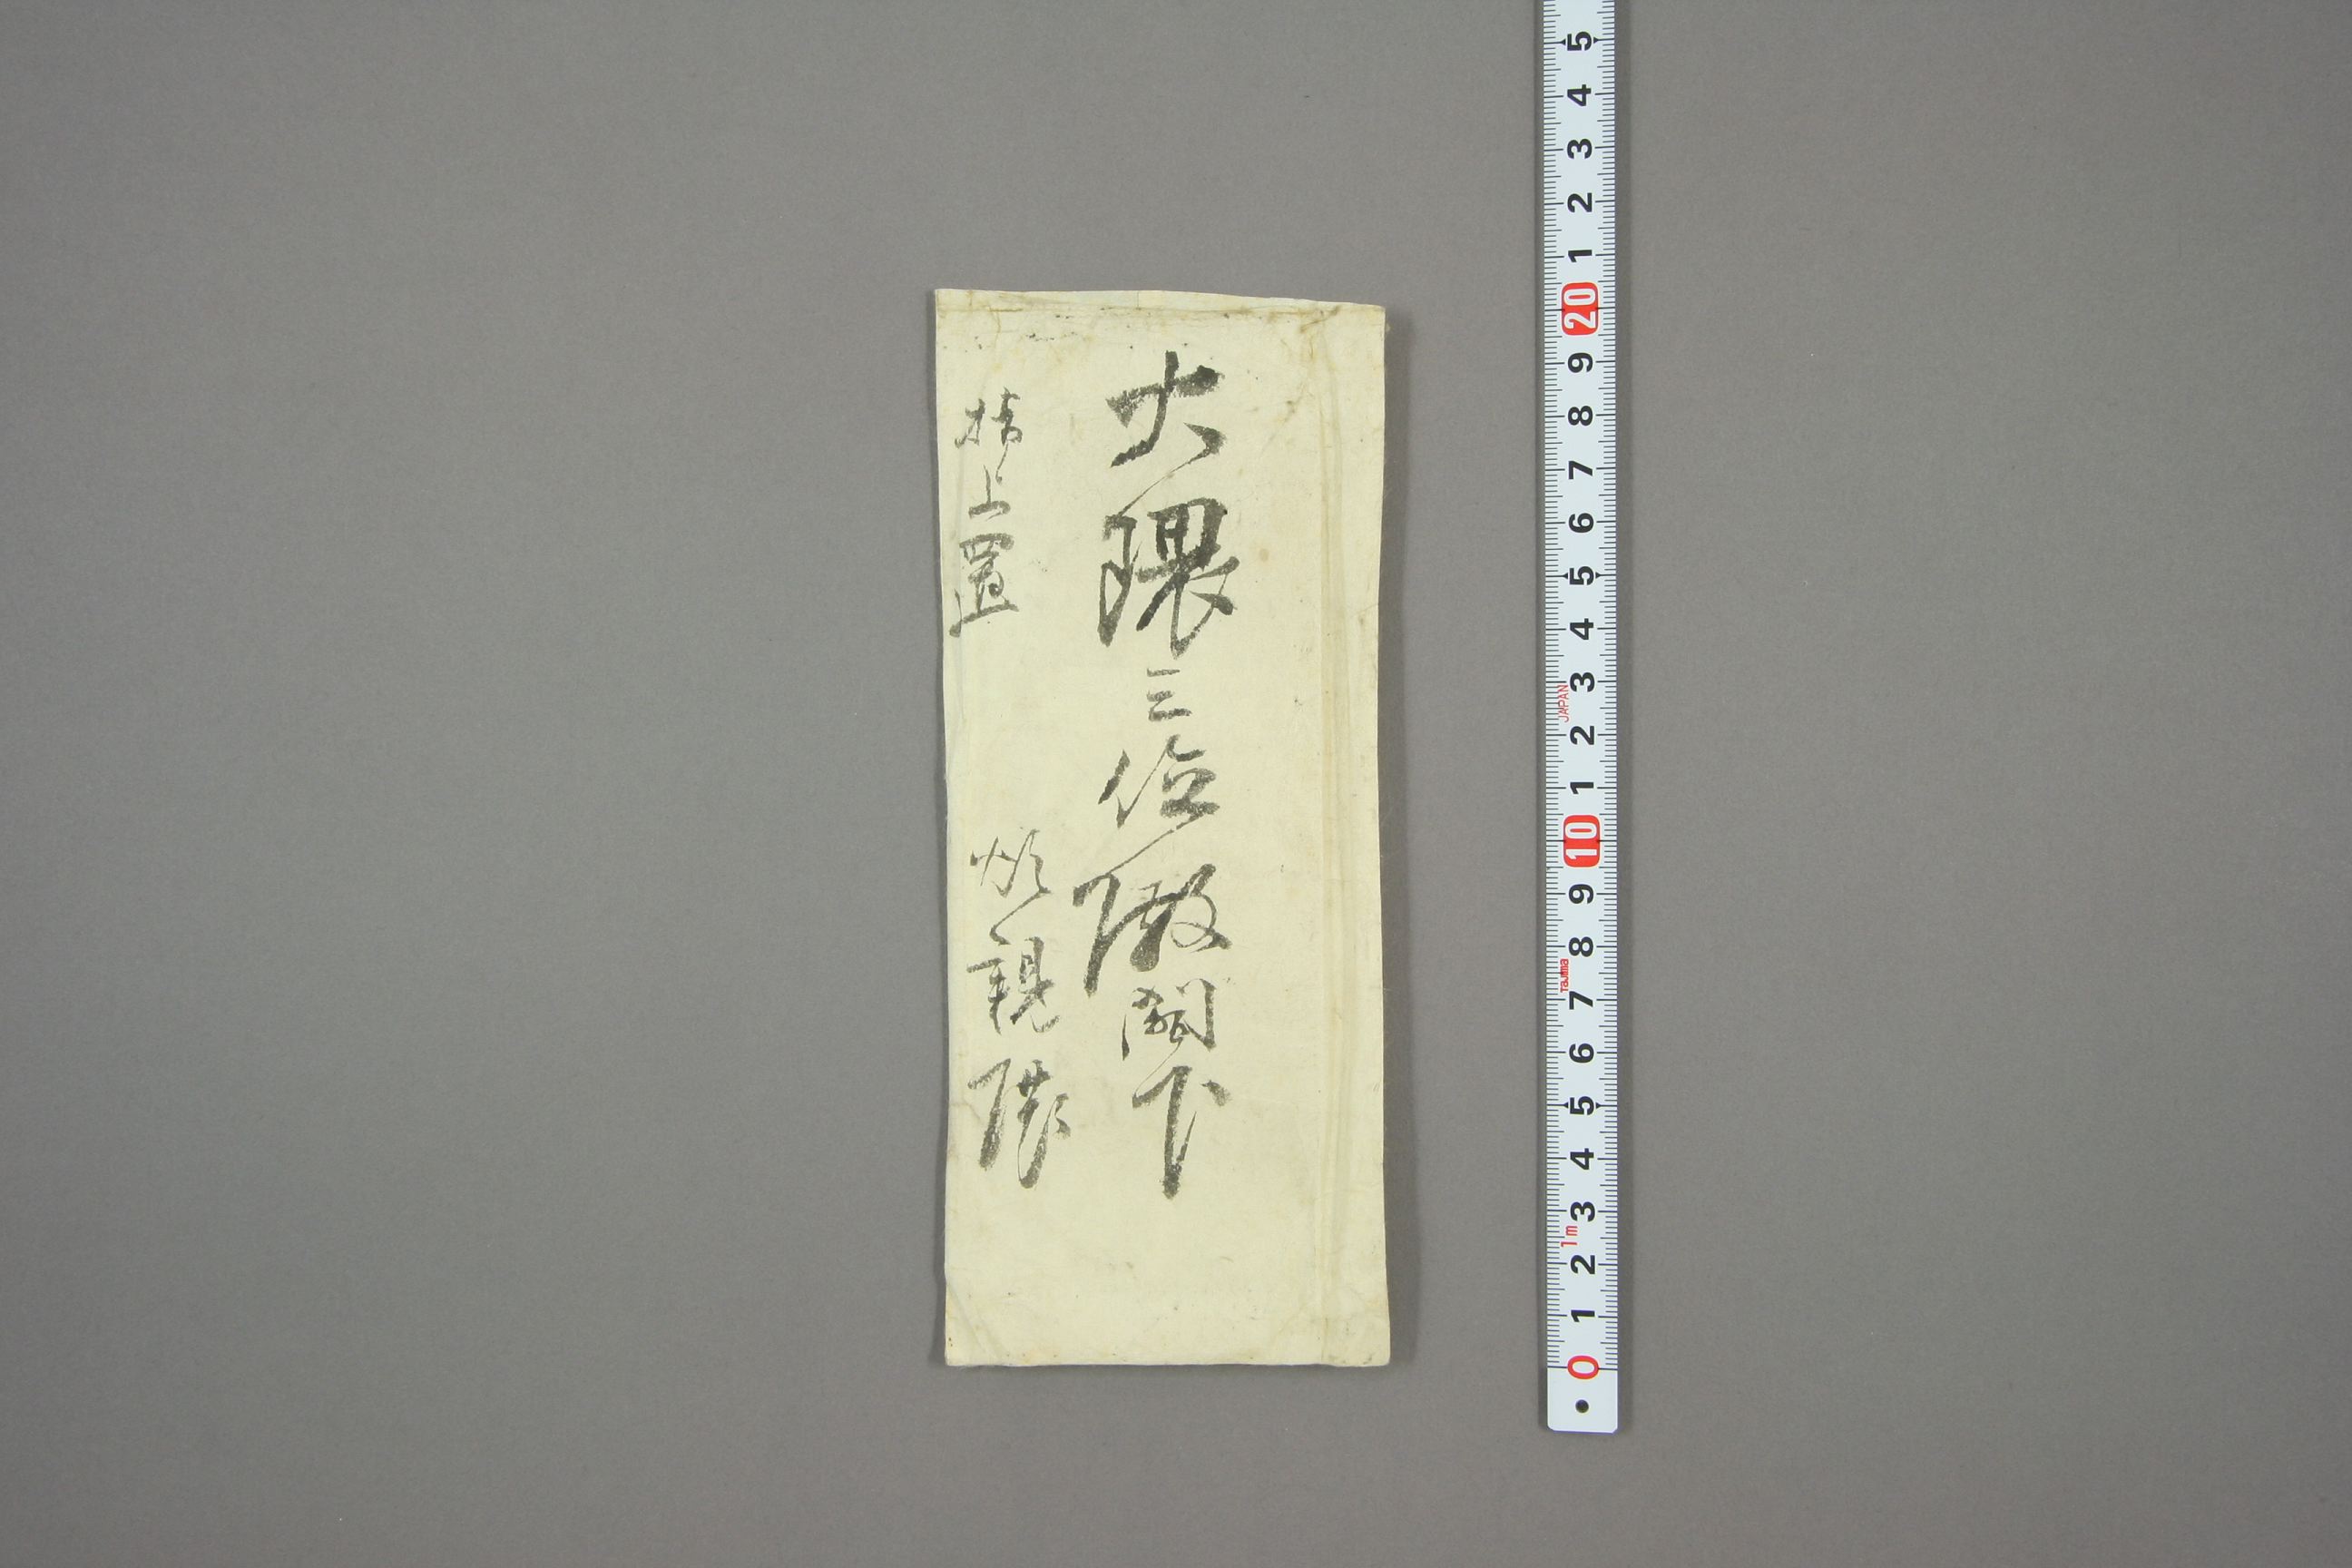 大隈三位殿閣下
拝上置
親隣
5
4
3
2
1
20
9
8
7
6
5
4
3
JAPAN
2
1
10
9
8
Tajima
7
6
5
4
3
1m
2
1
0